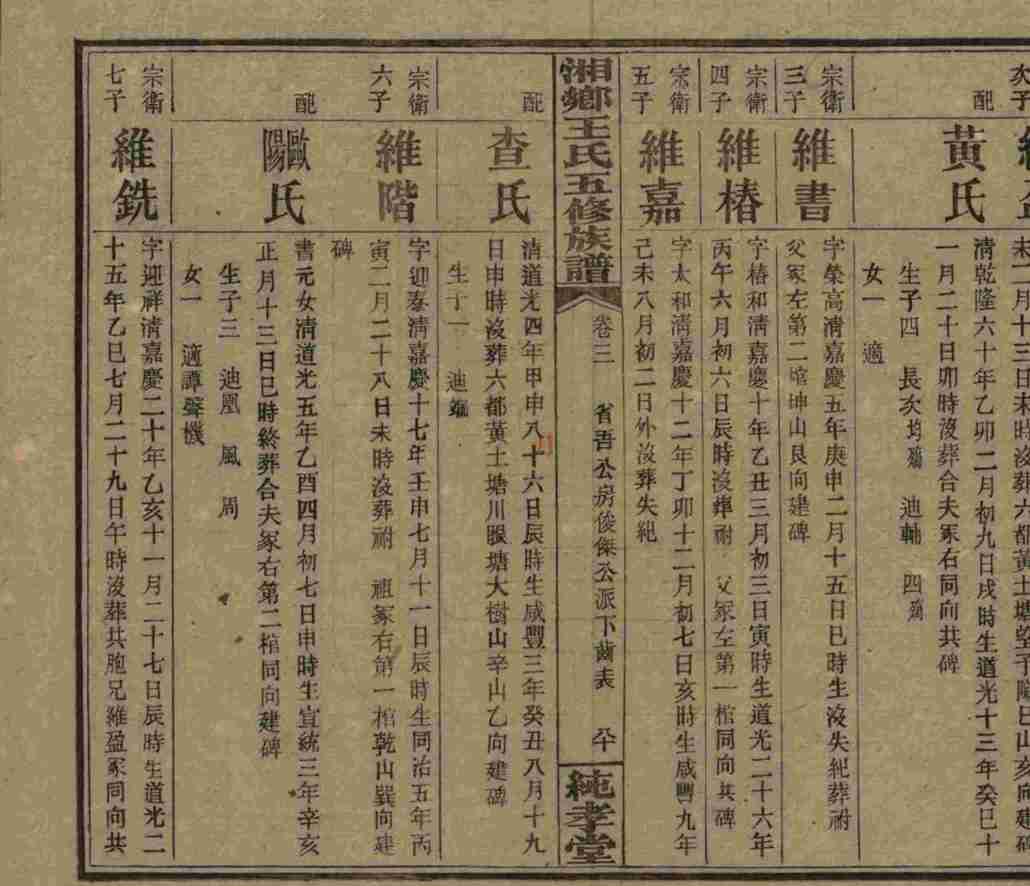 次子
未二月十三日未時沒葬六都黃土塘
配
黃氏
清乾隆六十年乙卯二月初九日戌時生道光十三年癸巳十
一月二十日卯時沒葬合夫冢右同向共碑
生子四 長次均殤 迪輔 四殤
女一 適
宗衛
三子
維書
字榮高清嘉慶五年庚申二月十五日巳時生沒失紀葬祔
父冢左第二棺坤山艮向建碑
宗衛
四子
維椿
字椿和清嘉慶十年乙丑三月初三日寅時生道光二十六年
丙午六月初六日辰時沒葬祔 父冢左第一棺同向共碑
宗衛
五子
維嘉
字太和清嘉慶十二年丁卯十二月初七日亥時生咸豐九年
己未八月初二日外沒葬失紀
湘鄉王氏五修族譜
卷三 省吾公房俊傑公派下齒表 六十
純孝堂
配
查氏
清道光四年甲申八十六日辰時生咸豐三年癸丑八月十九
日申時沒葬六都黃土塘川眼塘大樹山辛山乙向建碑
生子一 迪
宗衛
六子
維階
字迎泰清嘉慶十七年壬申七月十一日辰時生同治五年丙
寅二月二十八日未時沒葬祔 祖冢右第一棺乾山巽向建
碑
配
歐陽氏
書元女清道光五年乙酉四月初七日申時生宣統三年辛亥
正月十三日巳時終葬合夫冢右第二棺同向建碑
生子三 迪凰 風 周
女一 適譚聲機
宗衛
七子
維銑
字迎祥清嘉慶二十年乙亥十一月二十七日辰時生道光二
十五年乙巳七月二十九日午時沒葬共胞兄維盈冢同向共